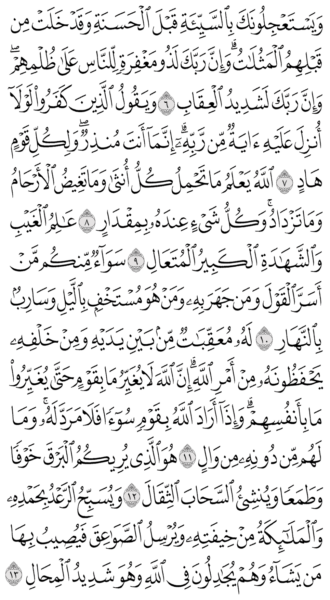 وَيَسْتَعْجِلُونَكَ بِالسَّيِّئَةِ قَبْلَ الْحَسَنَةِ وَقَدْ خَلَتْ مِن
قَبْلِهِمُ الْمَثُلَاتُ ۗ وَإِنَّ رَبَّكَ لَذُو مَغْفِرَةٍ لِّلنَّاسِ عَلَىٰ ظُلْمِهِمْ ۖ
وَإِنَّ رَبَّكَ لَشَدِيدُ الْعِقَابِ ٦ وَيَقُولُ الَّذِينَ كَفَرُوا لَوْلَا
أُنزِلَ عَلَيْهِ ءَايَةٌ مِّن رَّبِّهِۦٓ ۗ إِنَّمَا أَنتَ مُنذِرٌ ۖ وَلِكُلِّ قَوْمٍ
هَادٍ ٧ اللَّهُ يَعْلَمُ مَا تَحْمِلُ كُلُّ أُنثَىٰ وَمَا تَغِيضُ الْأَرْحَامُ
وَمَا تَزْدَادُ ۖ وَكُلُّ شَىْءٍ عِندَهُۥ بِمِقْدَارٍ ٨ عَٰلِمُ الْغَيْبِ
وَالشَّهَٰدَةِ الْكَبِيرُ الْمُتَعَالِ ٩ سَوَآءٌ مِّنكُم مَّنْ
أَسَرَّ الْقَوْلَ وَمَن جَهَرَ بِهِۦ وَمَنْ هُوَ مُسْتَخْفٍۭ بِالَّيْلِ وَسَارِبٌۢ
بِالنَّهَارِ ١٠ لَهُۥ مُعَقِّبَٰتٌ مِّنۢ بَيْنِ يَدَيْهِ وَمِنْ خَلْفِهِۦ
يَحْفَظُونَهُۥ مِنْ أَمْرِ اللَّهِ ۗ إِنَّ اللَّهَ لَا يُغَيِّرُ مَا بِقَوْمٍ حَتَّىٰ يُغَيِّرُوا
مَا بِأَنفُسِهِمْ ۗ وَإِذَآ أَرَادَ اللَّهُ بِقَوْمٍ سُوٓءًا فَلَا مَرَدَّ لَهُۥ ۚ وَمَا
لَهُم مِّن دُونِهِۦ مِن وَالٍ ١١ هُوَ الَّذِى يُرِيكُمُ الْبَرْقَ خَوْفًا
وَطَمَعًا وَيُنشِئُ السَّحَابَ الثِّقَالَ ١٢ وَيُسَبِّحُ الرَّعْدُ بِحَمْدِهِۦ
وَالْمَلَٰٓئِكَةُ مِنْ خِيفَتِهِۦ وَيُرْسِلُ الصَّوَٰعِقَ فَيُصِيبُ بِهَا
مَن يَشَآءُ وَهُمْ يُجَٰدِلُونَ فِى اللَّهِ وَهُوَ شَدِيدُ الْمِحَالِ ١٣